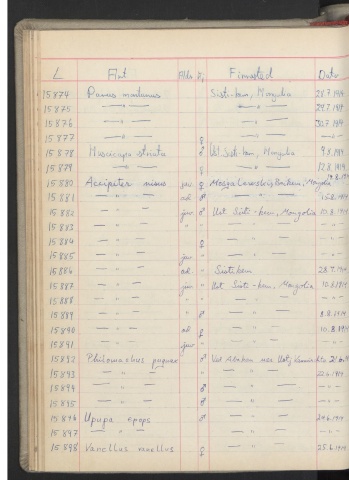 L Art Alder Finnested Dato
15874 Parus montanus Sisti-kem, Mongolia 28.7.1914
15875 — " — — " — 29.7.1914
15876 — " — — " — 30.7.1914
15877 — " — ♀ — " —
15878 Muscicapa striata ♂ Ust Sisti-kem, Mongolia 9.8.1914
15879 — " — ♀ — " — 12.8.1914
15880 Accipiter nisus juv ♀ Mongolia
15881 — " — ad. ♂ — " — 15.8.1914
15882 — " — juv ♂ Ust Sisti-kem, Mongolia 10.8.1914
15883 — " — " — " —
15884 — " — ♀ — " —
15885 — " — juv " — " —
15886 — " — ad. " Sisti kem 28.7.1914
15887 — " — juv " Ust Sisti-kem, Mongolia 10.8.1914
15888 — " — " " — " —
15889 — " — " ♂ — " — 8.8.1914
15890 — " — ad ♀ — " — 10.8.1914
15891 — " — juv " — " —
15892 Philomachus pugnax ♂ Ust Abakan
15893 — " — " — " — 22.6.1914
15894 — " — ♂ — " —
15895 — " — ♂ — " —
15896 Upupa epops ♂ — " — 24.6.1914
15897 — " — " — " —
15898 Vanellus vanellus ♀ — " — 25.6.1914